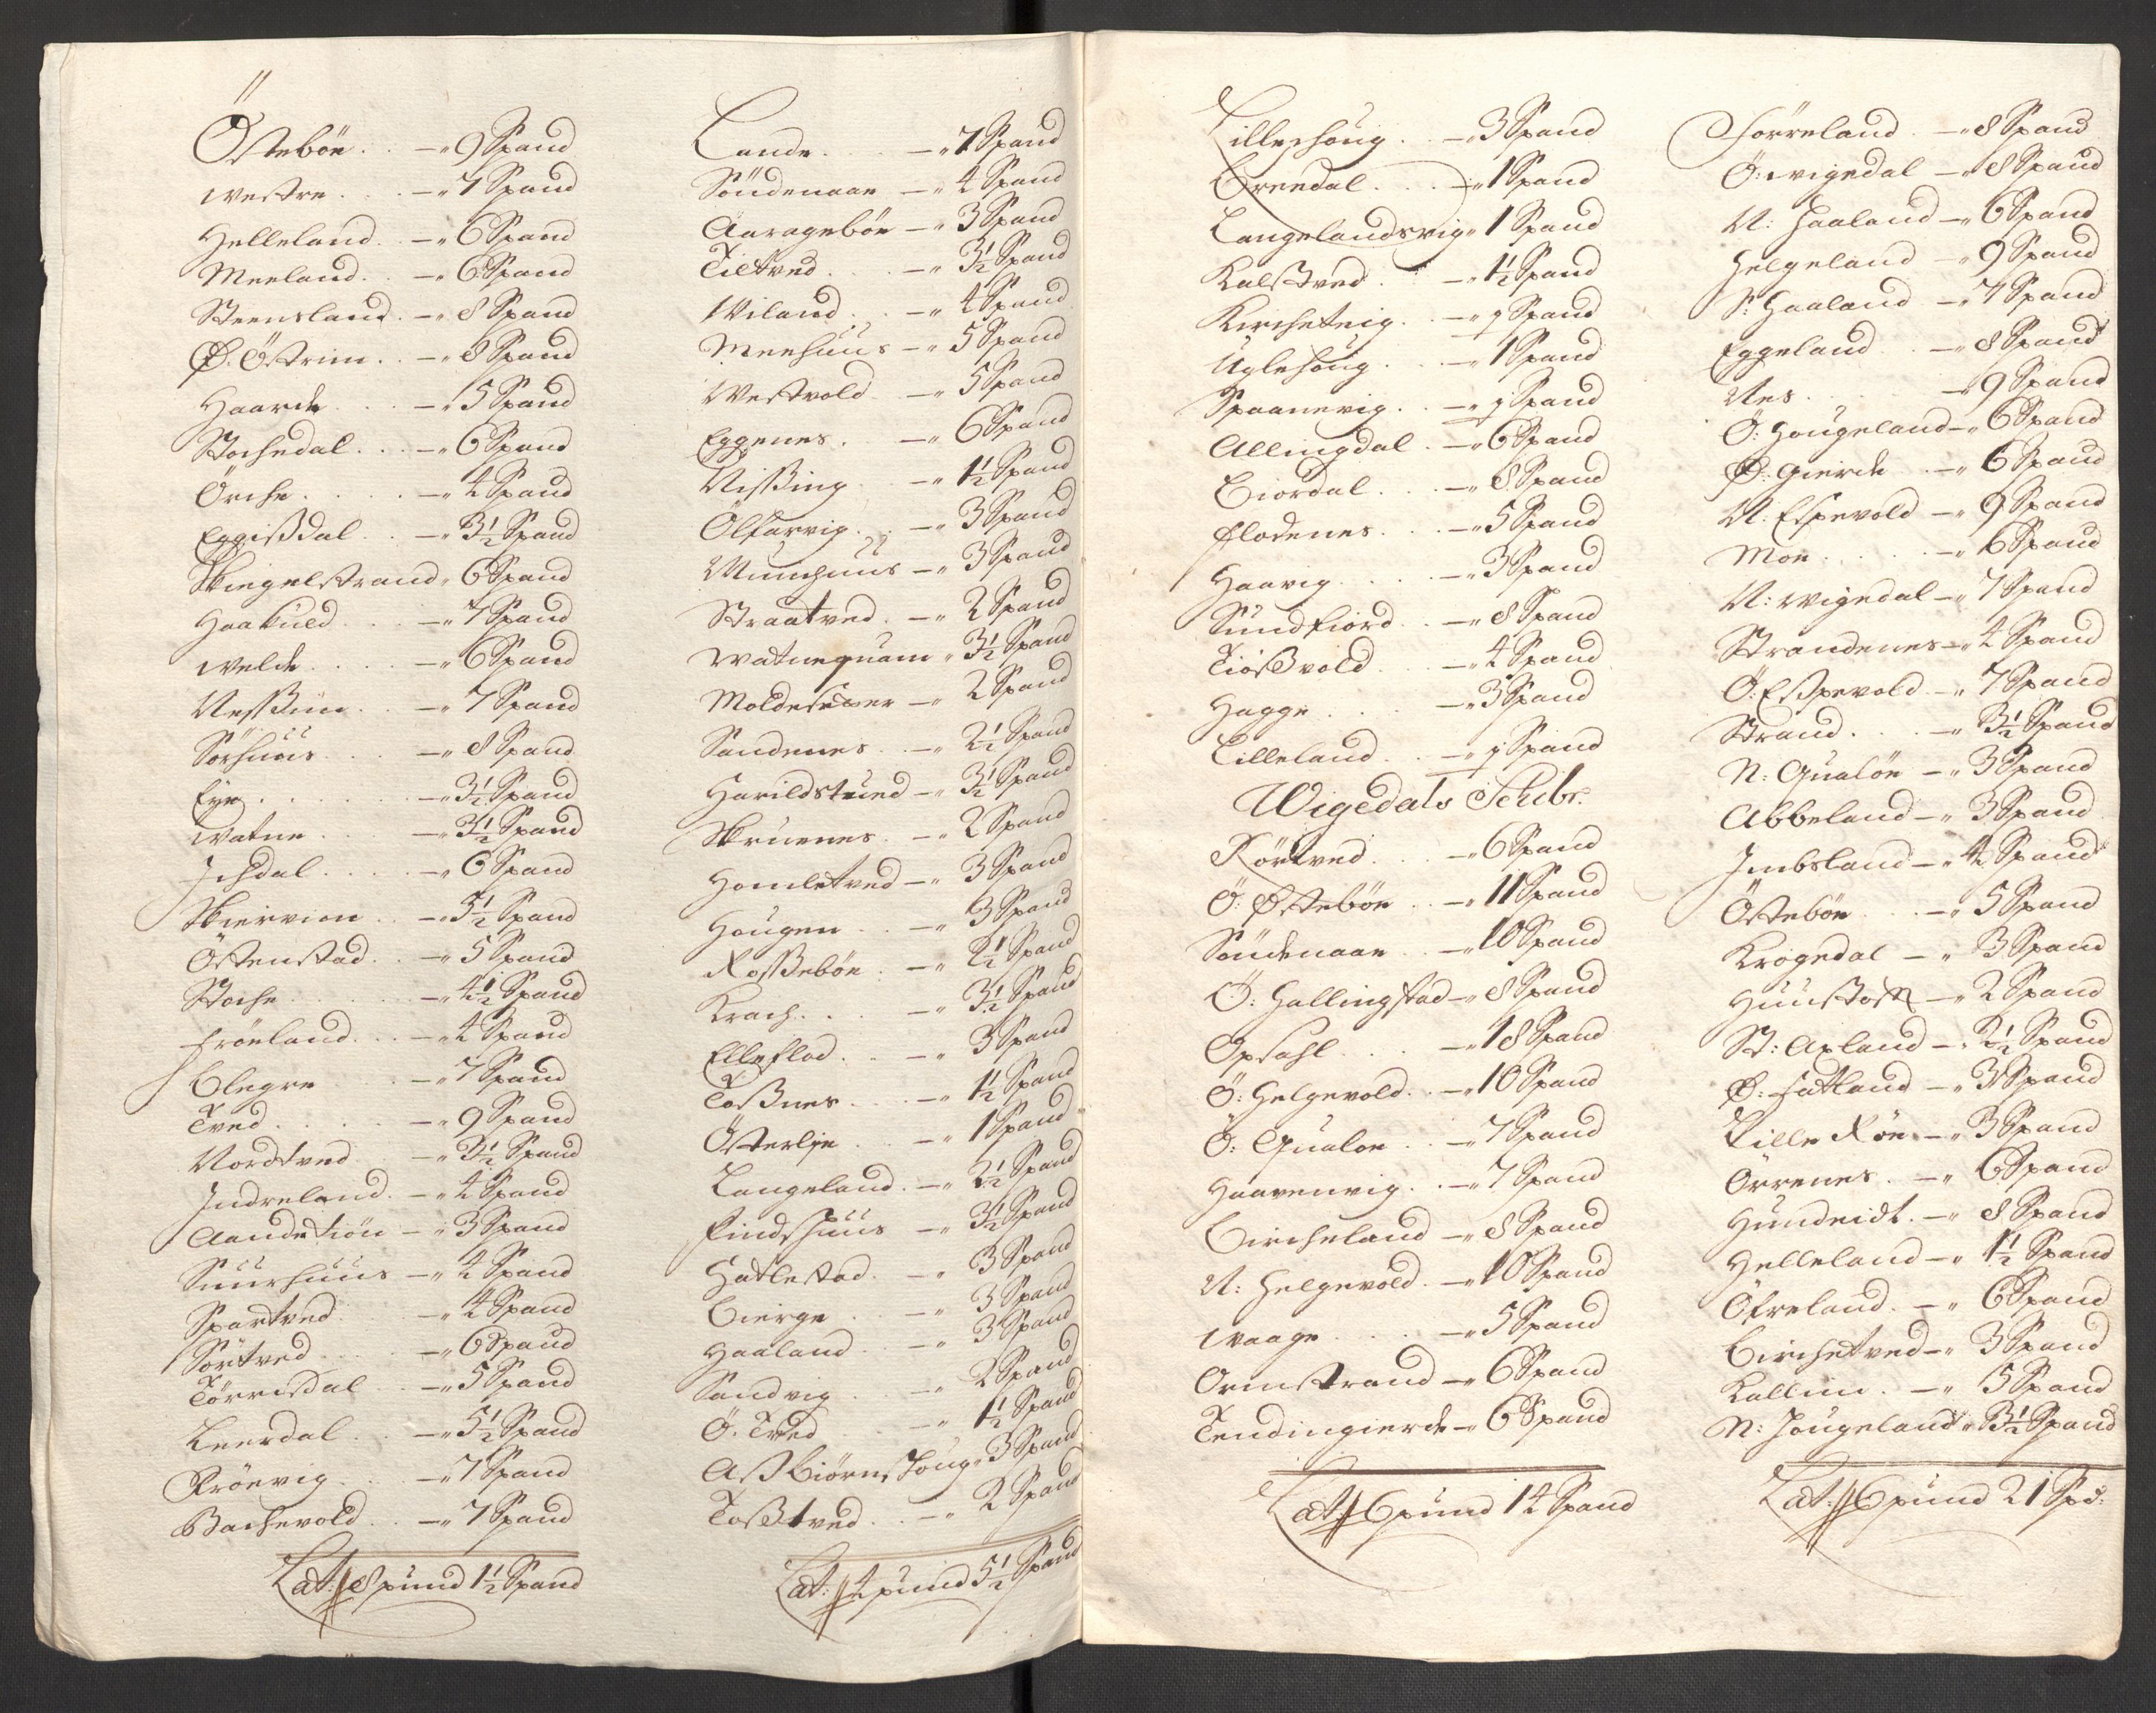 Östebön — 9 Spand
westre — 7 Spand
Helleland — 6 Spand
Meeland — 6 Spand
Steensland — 8 Spand
Ö. Östrim — 8 Spand
Haarde — 5 Spand
Stochedal — 6 Spand
Örche — 4 Spand
Eggißdal — 3½ Spand
Skiegelstrand 6 Spand
Haaküld — 7 Spand
welde — 6 Spand
Neßüm — 7 Spand
Sörhuus — 8 Spand
Eÿe — 3½ Spand
watne — 3½ Spand
Ichdal — 6 Spand
Skiervion — 5½ Spand
Östenstad — 5 Spand
Stoche — 4½ Spand
Fröeland — 4 Spand
Blegre — 7 Spand
Tved — 9 Spand
Nordtved — 3½ Spand
Indreland — 4 Spand
Aandetiön — 3 Spand
Smørhuus — 4 Spand
Spartved — 4 Spand
Sörtved — 6 Spand
Törrisdal — 5 Spand
Leerdal — 5½ Spand
Fröevig — 7 Spand
Bachevold — 7 Spand
Lat: 8 pund 1½ Spand
Lande — 7 Spand
Söndenaae — 4 Spand
Aaragebön — 3 Spand
Tiltved — 3½ Spand
Wiland — 4 Spand
Meehuus — 5 Spand
Westvold — 5 Spand
Eggenes — 6 Spand
Nißing — 1½ Spand
Ölfarvig — 3 Spand
Munchuus — 3 Spand
Straatved — 2 Spand
watnequam 3½ Spand
Moldesetter — 2 Spand
Sandenes — 2½ Spand
Harildstued — 3½ Spand
Skruenes — 2 Spand
Homletved — 3 Spand
Hougen — 3 Spand
Roßebön — 2½ Spand
Krach — 3½ Spand
Elleflod — 3 Spand
Toßnes — 1½ Spand
Österlje — 1 Spand
Langeland — 2½ Spand
Findshuus — 3½ Spand
Hatlestad — 3 Spand
Bierge — 3 Spand
Haaland — 3 Spand
Sandvig — 2 Spand
Ö. Tved — 1½ Spand
Aßbiörnshoug 3 Spand
Toßtved — 2 Spand
Lat: 4 pund 5½ Spand
Lillehoug — 3 Spand
Breedal — 1 Spand
Langelandsvig 1 Spand
Kalßtved — 1½ Spand
Kircheteig — 1 Spand
Uglehoug — 1 Spand
Spaanevig — 1 Spand
Allingdal — 6 Spand
Biordal — 8 Spand
Flodenes — 5 Spand
Haavig — 3 Spand
Sundfiord — 8 Spand
Tiößvold — 4 Spand
Hagge — 3 Spand
Lilleland — 1 Spand
Wigedals Schibr.
Rörtved — 6 Spand
Ö: Östebön — 11 Spand
Söndenaae — 10 Spand
Ö: Hallingstad — 8 Spand
Opsahl — 18 Spand
Ö: Helgevold — 10 Spand
Ö: Qualoe — 7 Spand
Haavenvig — 7 Spand
Bircheland — 8 Spand
N: Helgevold — 10 Spand
waage — 5 Spand
Ormstrand — 6 Spand
Tendingierde — 6 Spand
Lat: 6 pund 14 Spand
Førreland — 8 Spand
Ö: wigedal — 8 Spand
N: Haaland — 6 Spand
Helgeland — 9 Spand
S: Haaland — 7 Spand
Eggeland — 8 Spand
Nes — 9 Spand
Ö: Hougeland — 6 Spand
Ö: Gierde — 6 Spand
N: Espevold — 9 Spand
Moe — 6 Spand
N: wigedal — 7 Spand
Strandenes — 4 Spand
Ö: Eßpevold — 7 Spand
Strand — 3½ Spand
N: Qualöe — 3 Spand
Abbeland — 3 Spand
Imbsland — 4 Spand
Östebön — 5 Spand
Krogedal — 3 Spand
Huustoft — 2 Spand
St: Axland — 2½ Spand
Ö: Fatland — 3 Spand
Lille Röe — 3 Spand
Örrenes — 6 Spand
Hundeidt — 8 Spand
Helleland — 1½ Spand
Öfreland — 6 Spand
Birchetved — 3 Spand
Kallim — 5 Spand
N: Hougeland 3½ Spand
Lat: 6 pund 21 Spd: